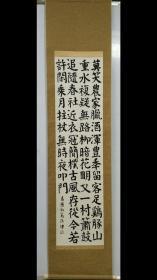 莫笑農家臘酒渾豐年留客足鷄豚山
重水複疑無路柳暗花明又一村簫鼓
追隨春社近衣冠簡樸古風存從今若
許閑乘月拄杖無時夜叩門